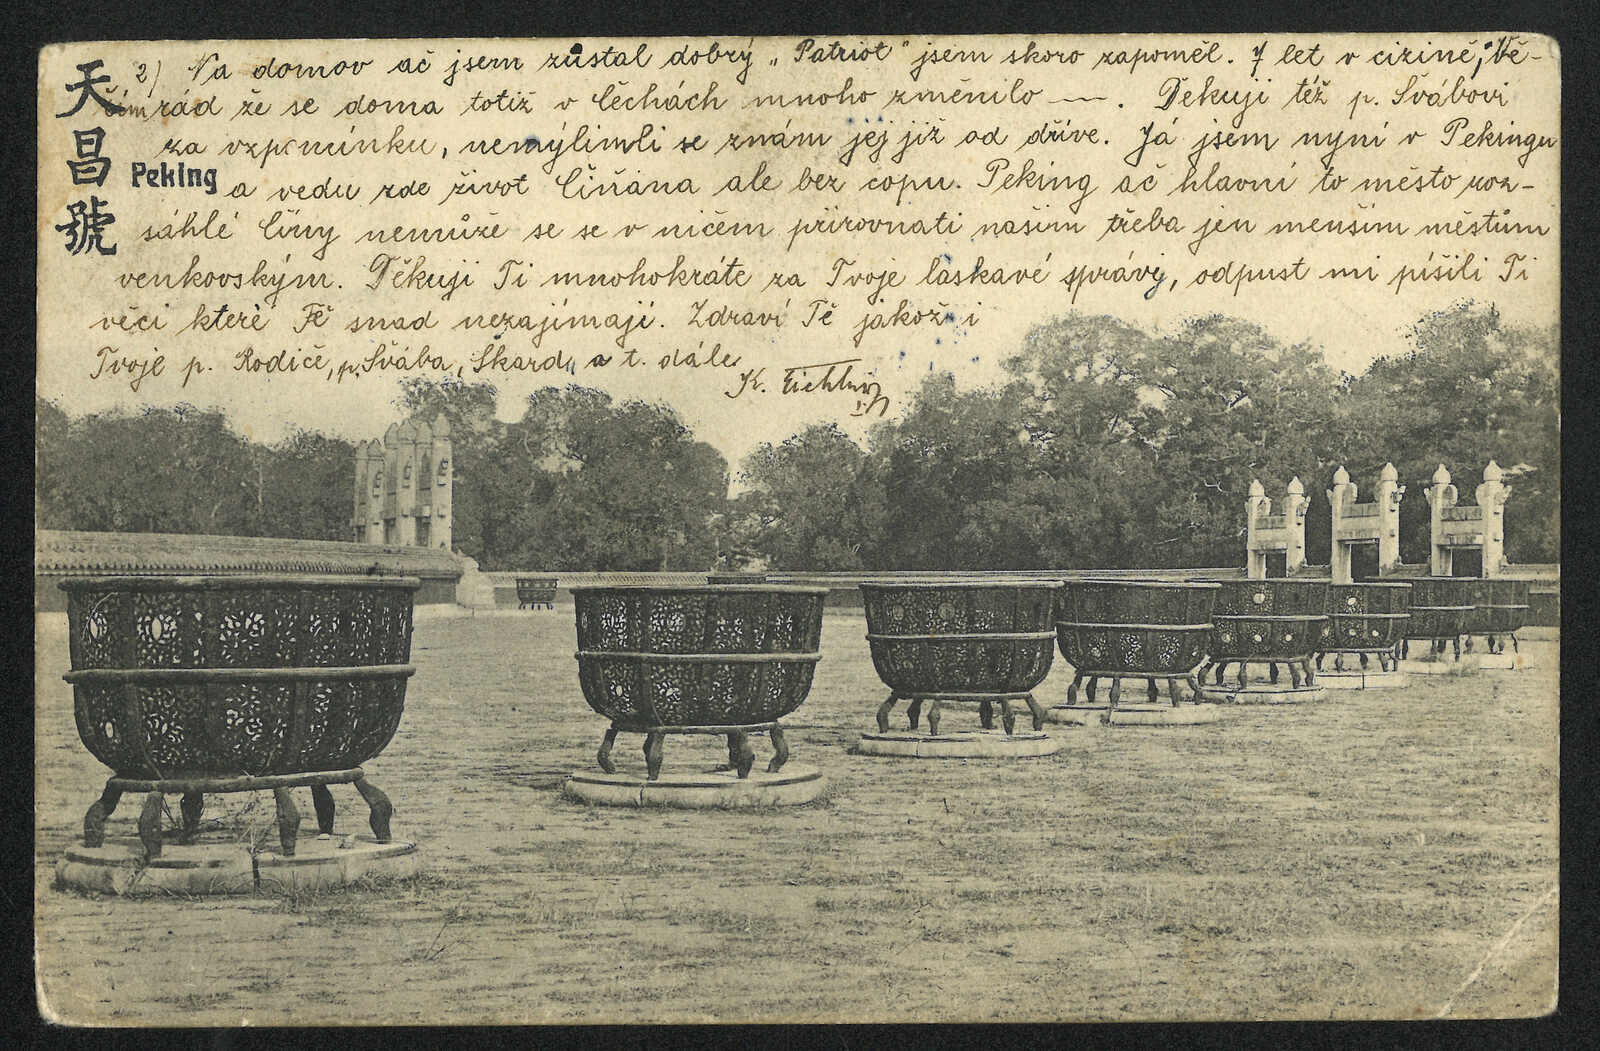 天昌號
Peking
2) Na domov ač jsem zůstal dobrý „Patriot" jsem skoro zapoměl. 7 let v cizině; Vě-
řím rád že se doma totiž v Čěchách mnoho změnilo —. Děkuji též p. Švábovi
za vzpomínku, nemýlimli se znám jej již od dříve. Já jsem nyní v Pekingu
a vedu zde život Číňana ale bez copu. Peking ač hlavní to město roz-
sáhlé Číny nemůže se se v ničem přirovnati našim třeba jen menším městům
venkovským. Děkuji Ti mnohokráte za Tvoje laskavé správy, odpust mi píšili Ti
věci které Tě snad nezajímají. Zdraví Tě jakož i
Tvoje p. Rodiče, p. Švába, Skard, a t. dále
K.